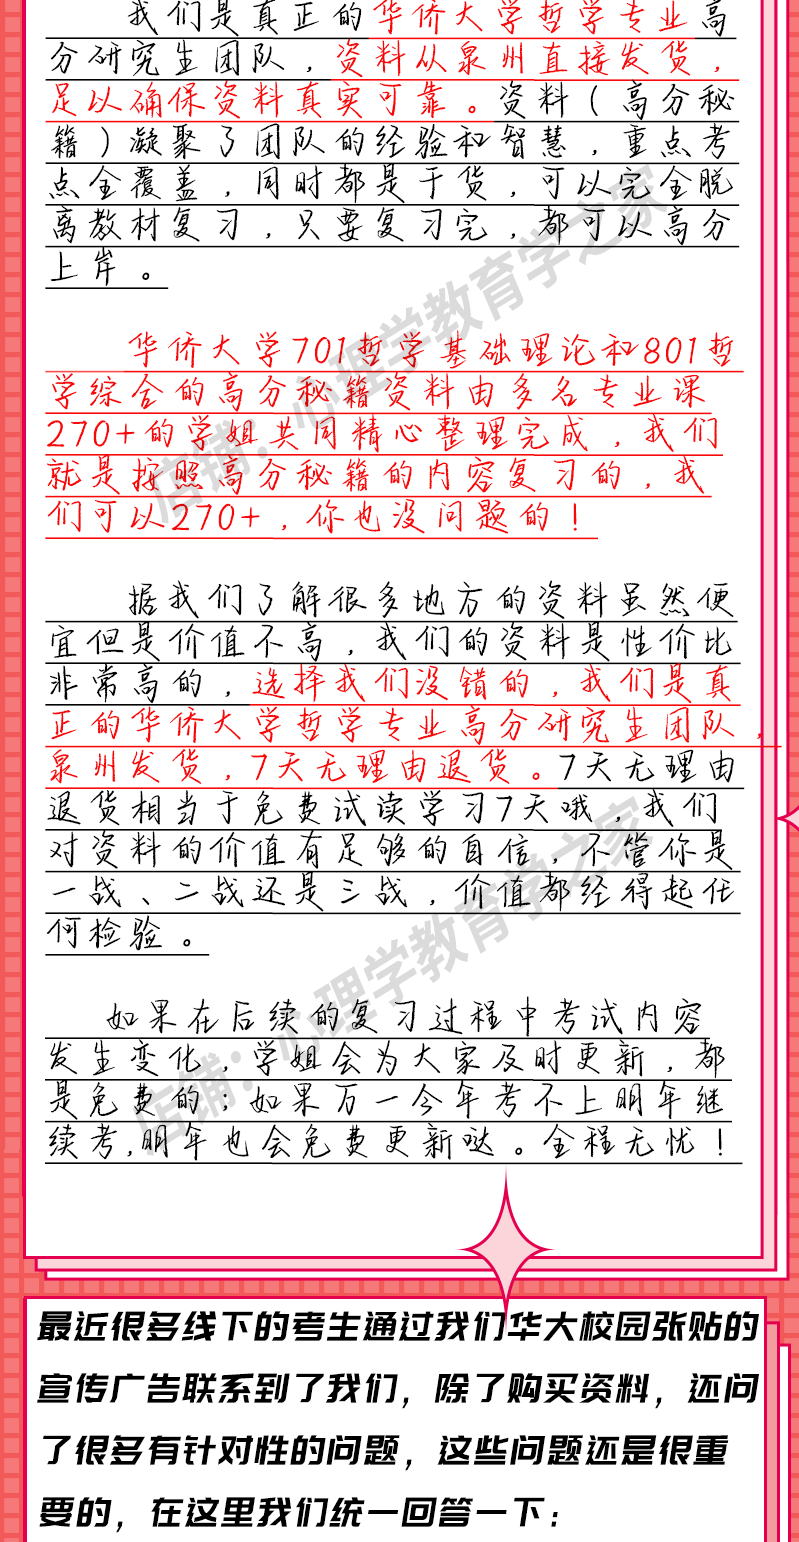 我们是真正的华侨大学哲学专业高
分研究生团队，资料从泉州直接发货，
足以确保资料真实可靠。资料（高分秘
籍）凝聚了团队的经验和智慧，重点考
点全覆盖，同时都是干货，可以完全脱
离教材复习，只要复习完，都可以高分
上岸。
华侨大学701哲学基础理论和801哲
学综合的高分秘籍资料由多名专业课
270+的学姐共同精心整理完成，我们
就是按照高分秘籍的内容复习的，我
们可以270+，你也没问题的！
据我们了解很多地方的资料虽然便
宜但是价值不高，我们的资料是性价比
非常高的，选择我们没错的，我们是真
正的华侨大学哲学专业高分研究生团队，
泉州发货，7天无理由退货。7天无理由
退货相当于免费试读学习7天哦，我们
对资料的价值有足够的自信，不管你是
一战、二战还是三战，价值都经得起任
何检验。
如果在后续的复习过程中考试内容
发生变化，学姐会为大家及时更新，都
是免费的；如果万一今年考不上明年继
续考,明年也会免费更新哒。全程无忧！
店铺：心理学教育学之家
店铺：心理学教育学之家
最近很多线下的考生通过我们华大校园张贴的
宣传广告联系到了我们，除了购买资料，还问
了很多有针对性的问题，这些问题还是很重
要的，在这里我们统一回答一下：